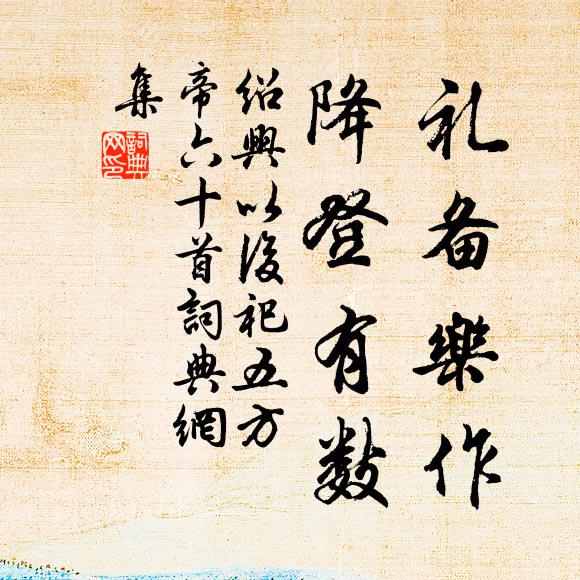 礼备樂作
降登有数
紹興以後祀五方
帝六十首詞典網
集
詞典网印